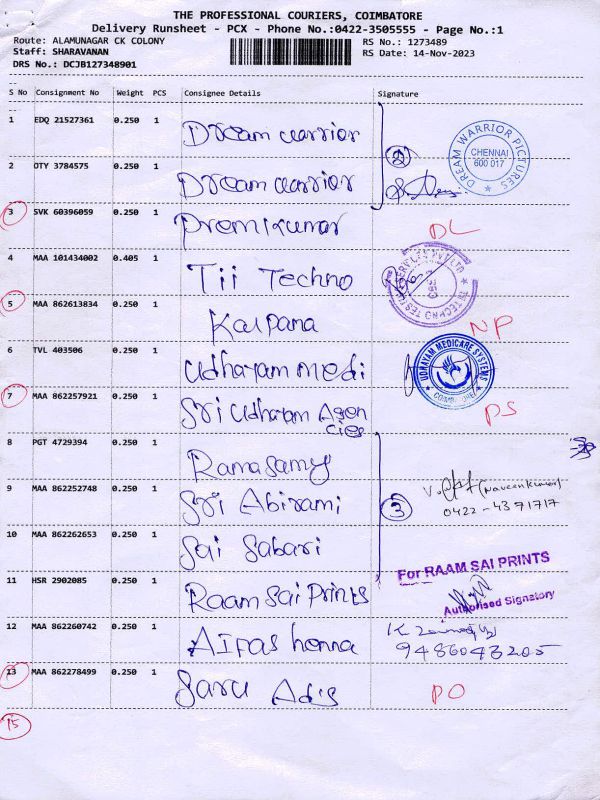 THE PROFESSIONAL COURIERS, COIMBATORE
Delivery Runsheet - PCX - Phone No.:0422-3505555 - Page No.:1
Route: ALAMUNAGAR CK COLONY
RS No.: 1273489
Staff: SHARAVANAN
RS Date: 14-Nov-2023
DRS No.: DCJB127348901
S No Consignment No Weight PCS Consignee Details Signature
1 EDQ 21527361 0.250 1 Dream warrior
DREAM WARRIOR PICTURES
CHENNAI
600 017
2 OTY 3784575 0.250 1 Dream warrior
2
3 SVK 60396059 0.250 1 Premikumar DL
4 MAA 101434002 0.405 1 Tii Techno
5 MAA 862613834 0.250 1 Kalpana NP
6 TVL 403506 0.250 1 Udhayam medi
UDHAYAM MEDICARE SYSTEMS
COIMBATORE
7 MAA 862257921 0.250 1 Sri Udhayam Agencies PS
8 PGT 4729394 0.250 1 Ramasamy
9 MAA 862252748 0.250 1 Sri Abirami
3
(Naveenkumar)
0422-4371717
10 MAA 862262653 0.250 1 Sai Sabari
For RAAM SAI PRINTS
11 HSR 2902085 0.250 1 Raam Sai Prints
Authorised Signatory
12 MAA 862260742 0.250 1 Aifas henna
9486043205
13 MAA 862278499 0.250 1 Saru Adis PO
15